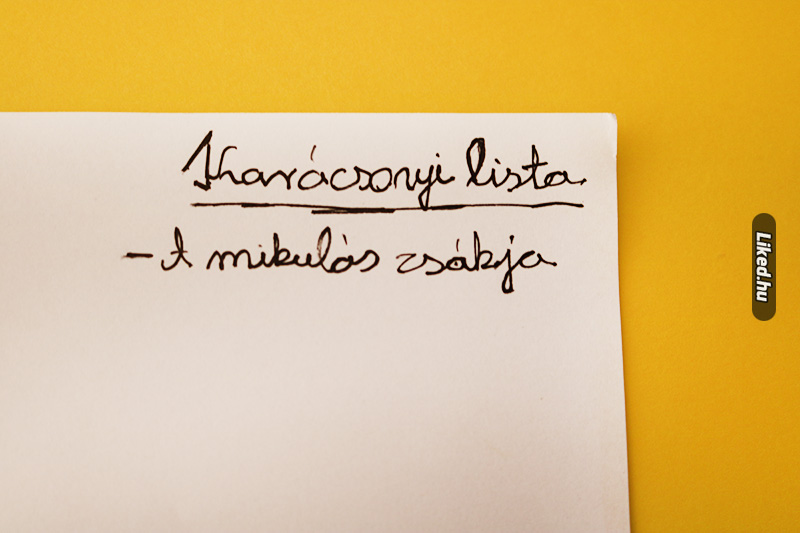 Karácsonyi lista
- A mikulás zsákja
Liked.hu